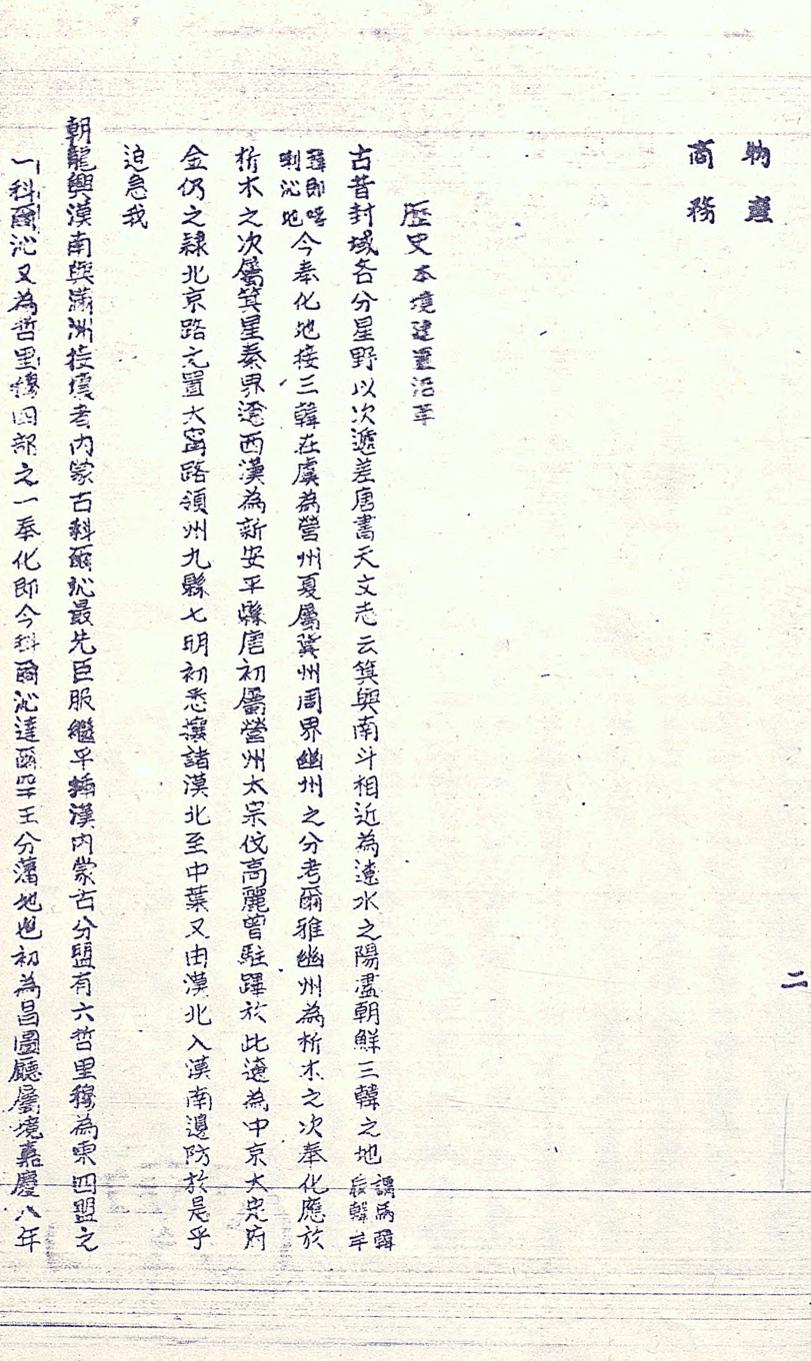 物產
商務
二
歷史 本境建置沿革
古昔封域各分星野以次遞差唐書天文志云箕與南斗相近為遼水之陽盡朝鮮三韓之地 謂馬韓辰韓弁
韓即喀喇沁地 今奉化地接三韓在虞為營州夏屬冀州周界幽州之分考爾雅幽州為析木之次奉化應於
析木之次屬箕星秦界遼西漢為新安平縣唐初屬營州太宗伐高麗曾駐蹕於此遼為中京大定府
金仍之隸北京路元置大甯路領州九縣七明初悉攘諸漠北至中葉又由漠北入漠南邊防於是乎
迫急我
朝龍興漠南與滿洲接壤者內蒙古科爾沁最先臣服繼平插漢內蒙古分盟有六哲里穆為東四盟之
一科爾沁又為哲里穆四部之一奉化即今科爾沁達爾罕王分藩地也初為昌圖廳屬境嘉慶八年